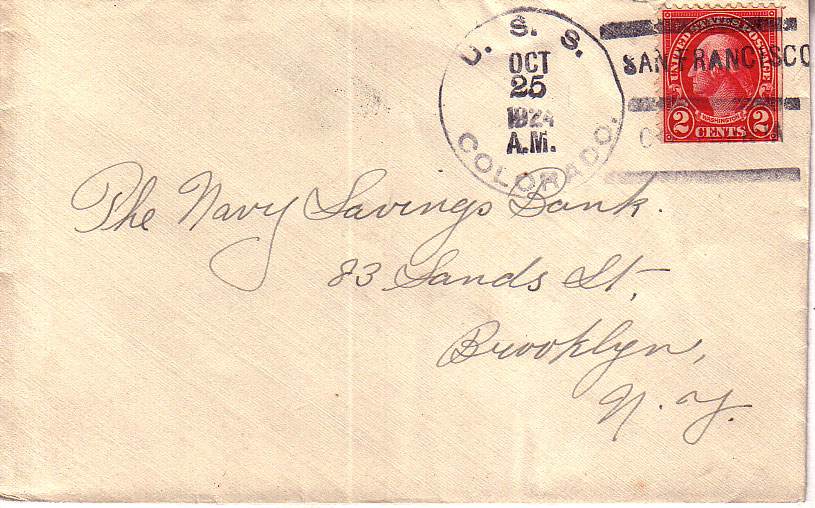 U. S. S.
OCT
25
1924
A.M.
COLORADO.
SAN FRANCISCO
UNITED STATES POSTAGE
WASHINGTON
2 CENTS 2
The Navy Savings Bank.
83 Sands St,
Brooklyn,
N. Y.